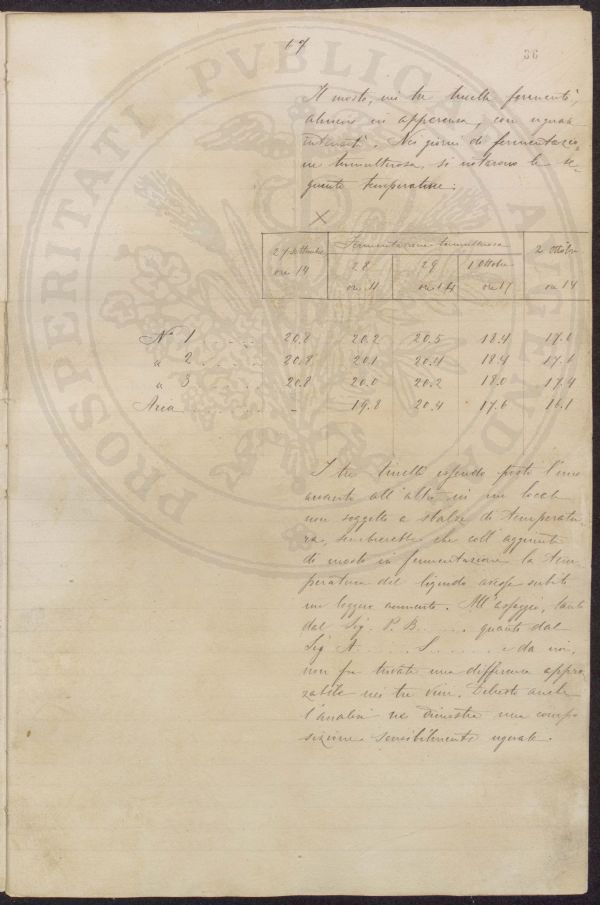 17
36
Il mosto, nei tre tinelli fermentò,
almeno in apparenza, con uguale
intensità. Nei giorni di fermentazio-
ne tumultuosa, si notarono le se-
guenti temperature:
X
27 Settembre ore 14
Fermentazione tumultuosa
28 ore 11
29 ore 14
1 Ottobre ore 17
2 Ottobre ore 14
No 1 . . . . . 20.8 20.2 20.5 18.4 17.0
" 2 . . . . . 20.8 20.1 20.4 18.4 17.1
" 3 . . . . . 20.8 20.0 20.2 18.0 17.4
Aria . . . . . - 19.8 20.4 17.6 16.1
I tre tinelli essendo posti l'uno
accanto all'altro in un locale
non soggetto a sbalzi di temperatu-
ra, sembrerebbe che coll'aggiunta
di mosto in fermentazione la tem-
peratura del liquido avesse subito
un leggero aumento. All'assaggio, tanto
dal Sig. P. B. . . . . quanto dal
Sig A . . . . S . . . . . e da noi,
non fu trovata una differenza apprez-
zabile nei tre vini. anche
l'analisi ne dimostra una compo-
sizione sensibilmente uguale.
PROSPERITATI PVBLICAE AVGENDAE